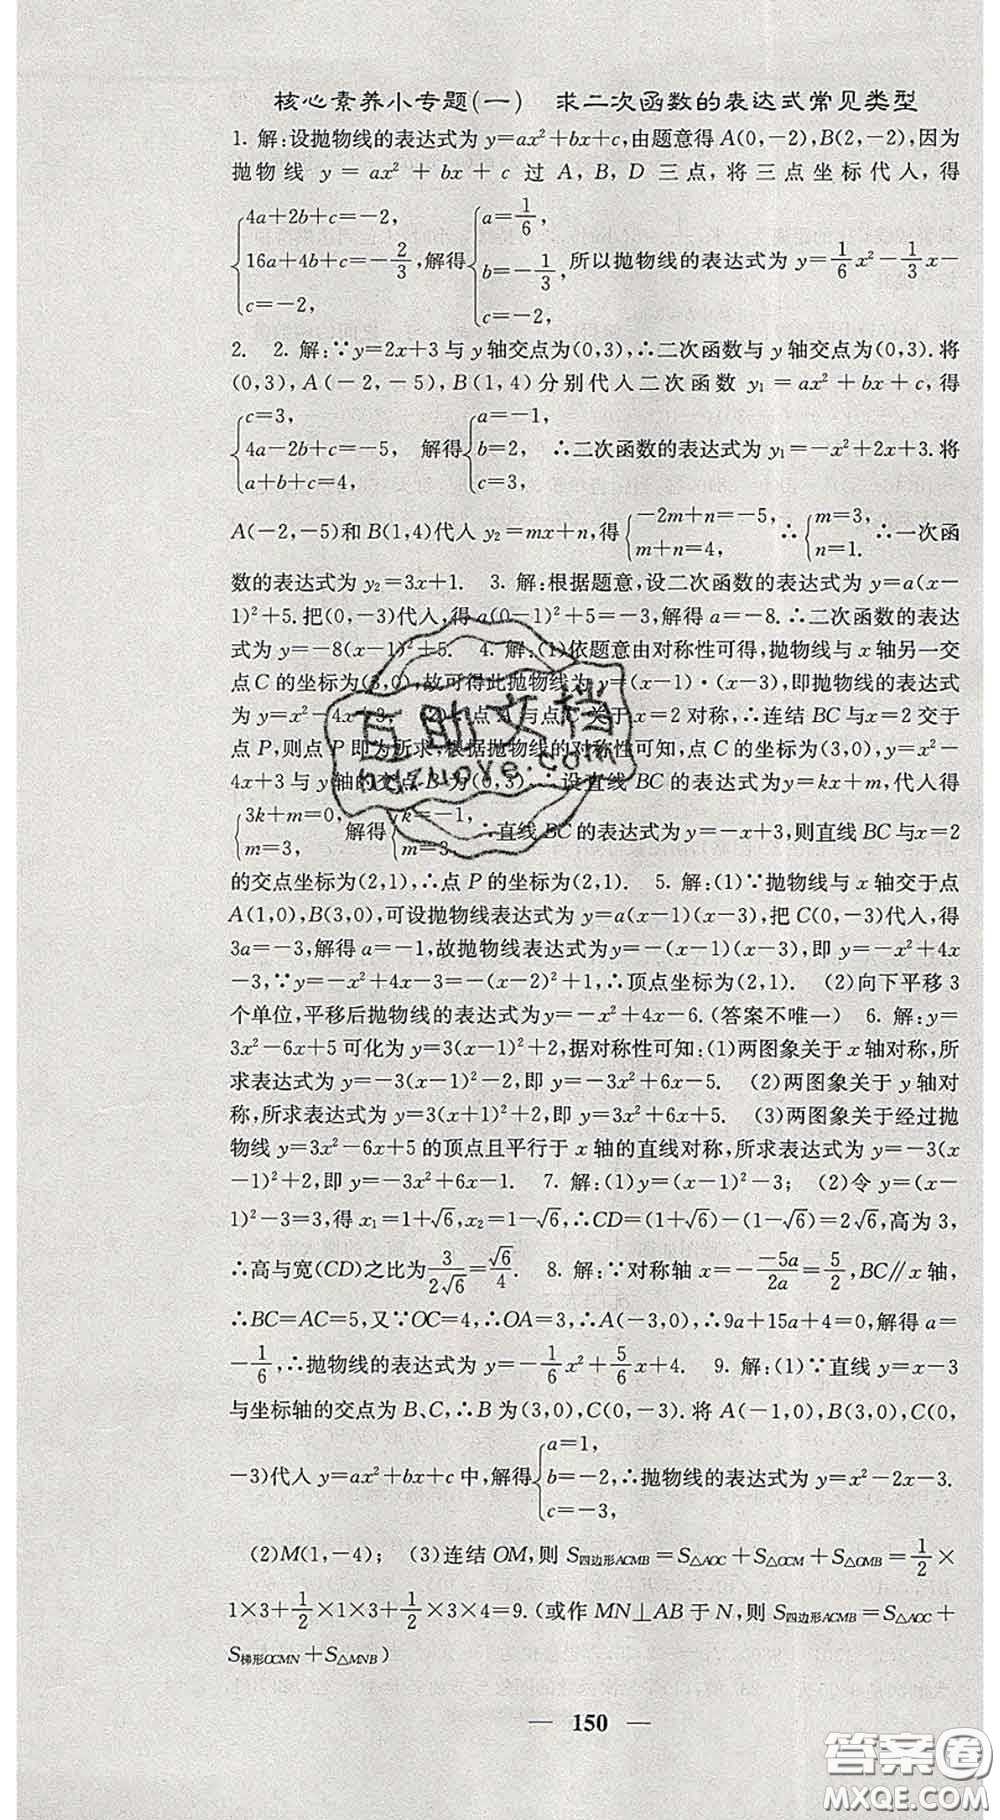 核心素养小专题(一)　求二次函数的表达式常见类型
1. 解:设抛物线的表达式为 y=ax²+bx+c,由题意得 A(0,-2),B(2,-2),因为
抛物线 y=ax²+bx+c 过 A,B,D 三点,将三点坐标代入,得
{4a+2b+c=-2, 16a+4b+c=-2/3, c=-2, 解得 {a=1/6, b=-1/3, c=-2, 所以抛物线的表达式为 y=1/6x²-1/3x-
2.　2. 解:∵y=2x+3 与 y 轴交点为(0,3),∴二次函数与 y 轴交点为(0,3).将
(0,3),A(-2,-5),B(1,4)分别代入二次函数 y₁=ax²+bx+c,得
{c=3, 4a-2b+c=-5, a+b+c=4, 解得 {a=-1, b=2, c=3, ∴二次函数的表达式为 y₁=-x²+2x+3.将
A(-2,-5)和 B(1,4)代入 y₂=mx+n,得 {-2m+n=-5, m+n=4, ∴ {m=3, n=1. ∴一次函
数的表达式为 y₂=3x+1.　3. 解:根据题意,设二次函数的表达式为 y=a(x-
1)²+5.把(0,-3)代入,得 a(0-1)²+5=-3,解得 a=-8.∴二次函数的表达
式为 y=-8(x-1)²+5.　4. 解:(1)依题意由对称性可得,抛物线与 x 轴另一交
点 C 的坐标为(3,0),故可得此抛物线为 y=(x-1)·(x-3),即抛物线的表达式
为 y=x²-4x+3.　(2)∵点 A 与点 C 关于 x=2 对称,∴连结 BC 与 x=2 交于
点 P,则点 P 即为所求,根据抛物线的对称性可知,点 C 的坐标为(3,0),y=x²-
4x+3 与 y 轴的交点 B 为(0,3).∴设直线 BC 的表达式为 y=kx+m,代入得
{3k+m=0, m=3, 解得 {k=-1, m=3. ∴直线 BC 的表达式为 y=-x+3,则直线 BC 与 x=2
的交点坐标为(2,1),∴点 P 的坐标为(2,1).　5. 解:(1)∵抛物线与 x 轴交于点
A(1,0),B(3,0),可设抛物线表达式为 y=a(x-1)(x-3),把 C(0,-3)代入,得
3a=-3,解得 a=-1,故抛物线表达式为 y=-(x-1)(x-3),即 y=-x²+4x
-3,∵y=-x²+4x-3=-(x-2)²+1,∴顶点坐标为(2,1).　(2)向下平移 3
个单位,平移后抛物线的表达式为 y=-x²+4x-6.(答案不唯一)　6. 解:y=
3x²-6x+5 可化为 y=3(x-1)²+2,据对称性可知:(1)两图象关于 x 轴对称,所
求表达式为 y=-3(x-1)²-2,即 y=-3x²+6x-5.　(2)两图象关于 y 轴对
称,所求表达式为 y=3(x+1)²+2,即 y=3x²+6x+5.　(3)两图象关于经过抛
物线 y=3x²-6x+5 的顶点且平行于 x 轴的直线对称,所求表达式为 y=-3(x
-1)²+2,即 y=-3x²+6x-1.　7. 解:(1)y=(x-1)²-3;　(2)令 y=(x-
1)²-3=3,得 x₁=1+√6,x₂=1-√6,∴CD=(1+√6)-(1-√6)=2√6,高为 3,
∴高与宽(CD)之比为 3/(2√6)=√6/4.　8. 解:∵对称轴 x=-(-5a)/(2a)=5/2,BC∥x 轴,
∴BC=AC=5,又∵OC=4,∴OA=3,∴A(-3,0),∴9a+15a+4=0,解得 a=
-1/6,∴抛物线的表达式为 y=-1/6x²+5/6x+4.　9. 解:(1)∵直线 y=x-3
与坐标轴的交点为 B、C,∴B 为(3,0),C(0,-3).将 A(-1,0),B(3,0),C(0,
-3)代入 y=ax²+bx+c 中,解得 {a=1, b=-2, c=-3, ∴抛物线的表达式为 y=x²-2x-3.
(2)M(1,-4);　(3)连结 OM,则 S四边形ACMB=S△AOC+S△OCM+S△OMB=1/2×
1×3+1/2×1×3+1/2×3×4=9.(或作 MN⊥AB 于 N,则 S四边形ACMB=S△AOC+
S梯形OCMN+S△MNB)
— 150 —
互助文档
hdzuoye.com
答案圈
MXQE.COM